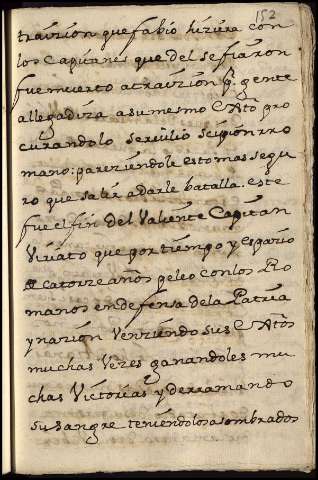 152
traizion que fabio hiziera con
los Capitanes que del se fiaron
fue muerto a traizion pr. gente
allegadiza a su mesmo Cato. pro
curandolo seruilio scipion rro
mano: pareziendole esto mas segu
ro que salir a darle batalla. este
fue el fin del Valiente Capitan
Viriato que por tiempo y espazio
de catorze años peleo con los Ro
manos en defensa de la Patria
y nazion Venziendo sus Catos
muchas Vezes ganandoles mu
chas Victorias y derramando
su sangre teniendolos asombrados